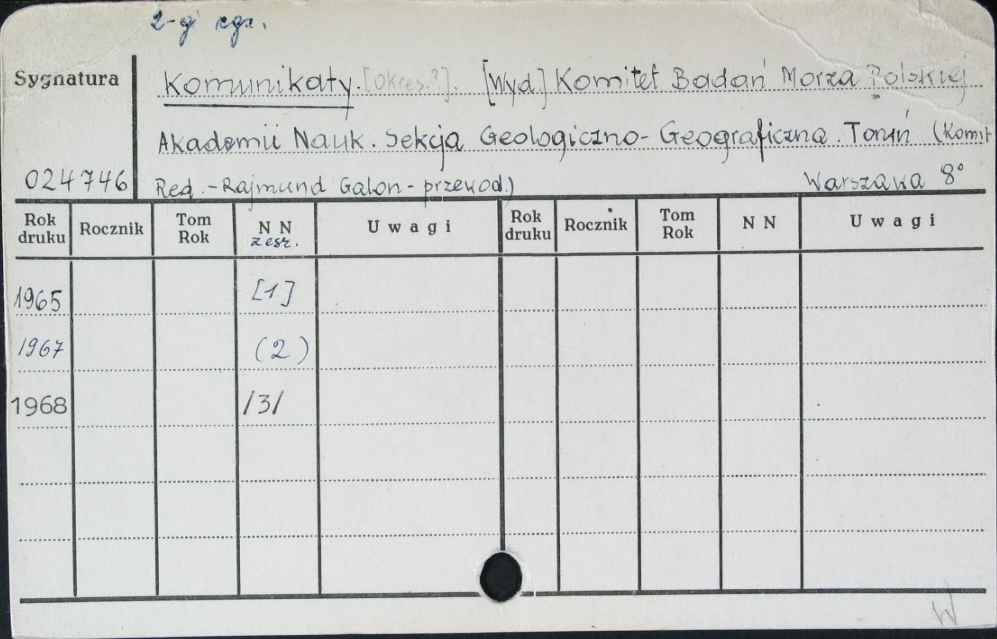 2-g egz.
Sygnatura
Komunikaty. [Okres.?]. [Wyd.] Komitet Badań Morza Polskiej
Akademii Nauk. Sekcja Geologiczno-Geograficzna. Toruń (Komit
024746 Red. - Rajmund Galon - przewod.) Warszawa 8°
Rok druku Rocznik Tom Rok N N zesz. Uwagi Rok druku Rocznik Tom Rok N N Uwagi
1965 [1]
1967 (2)
1968 /3/
W